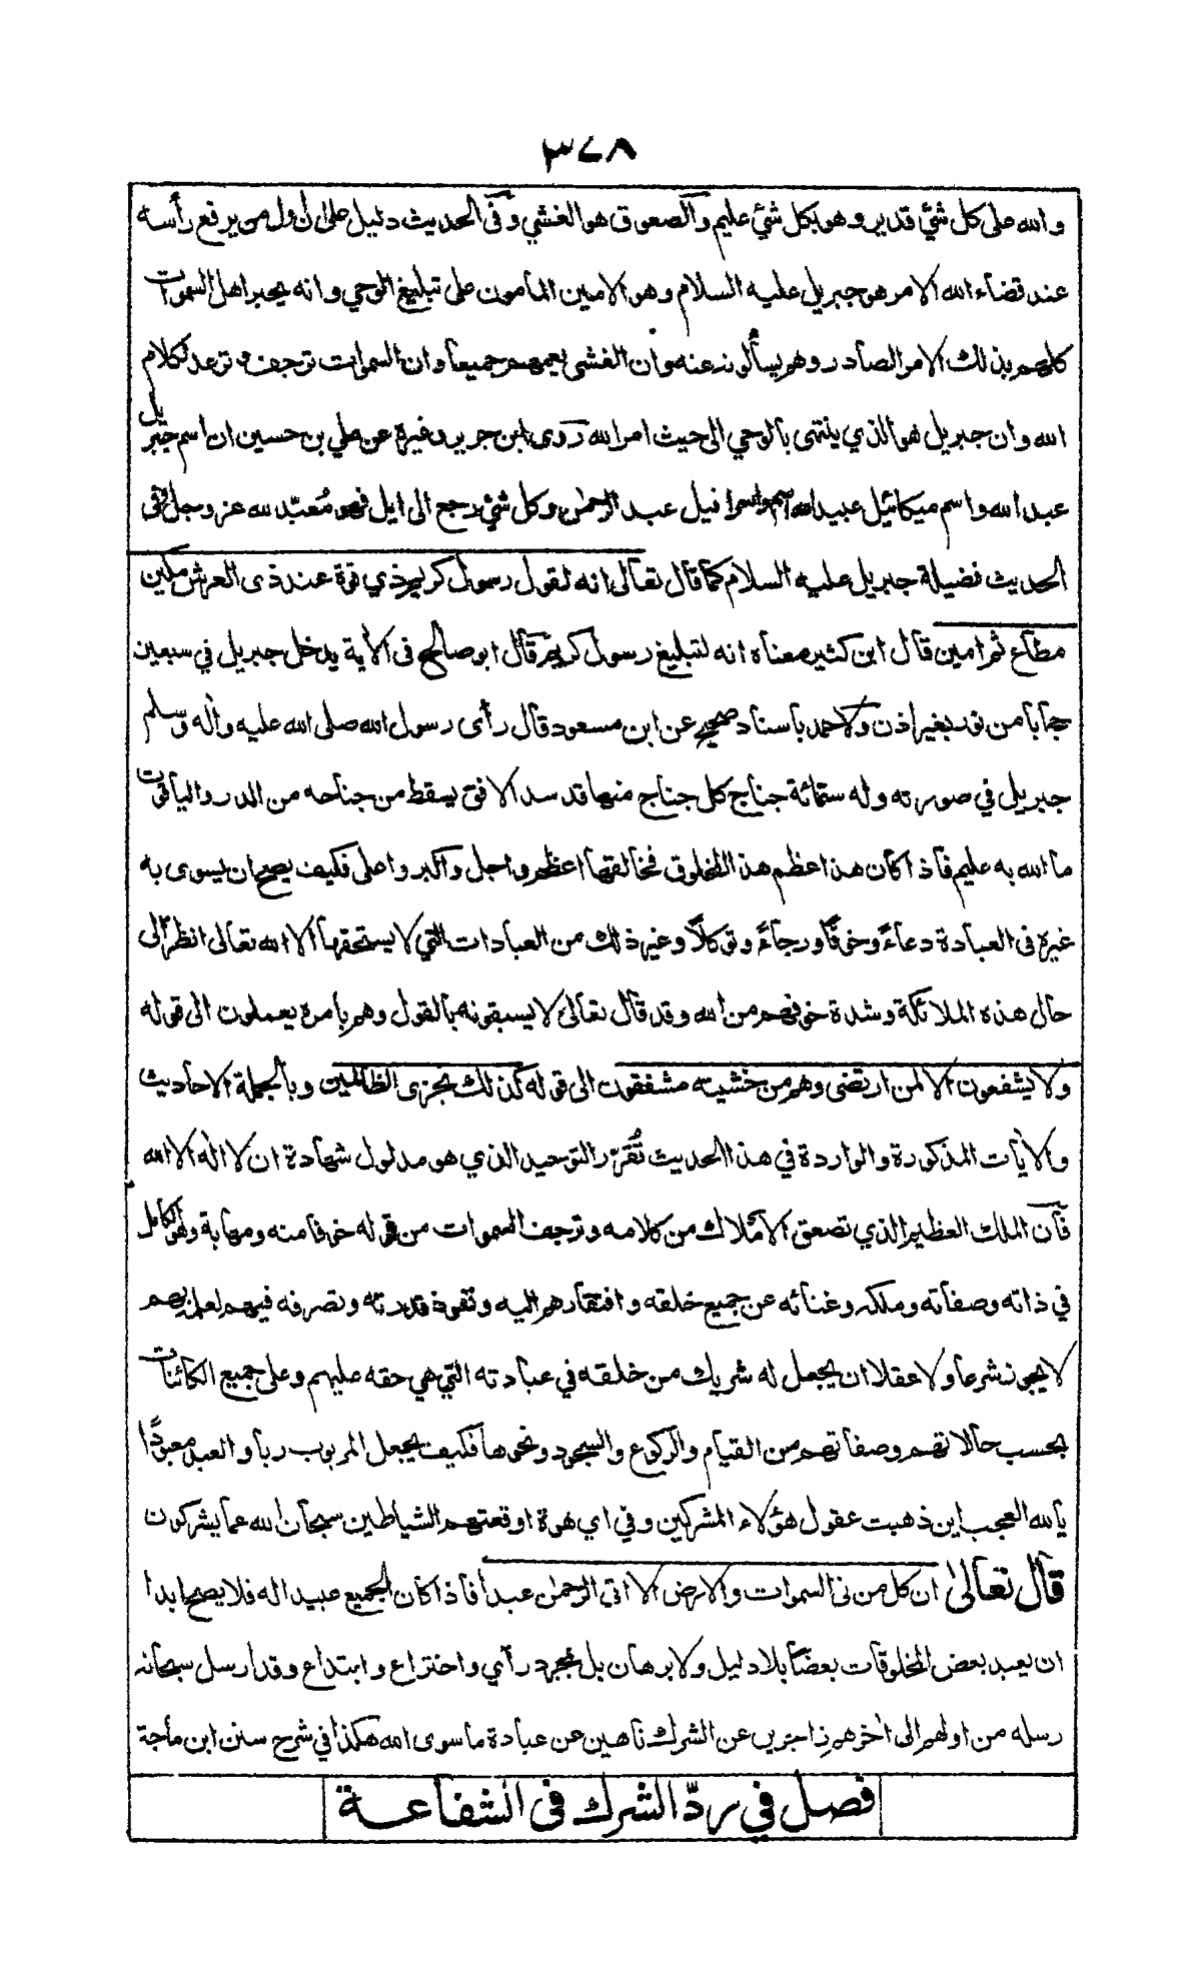 ٣٧٨
والله على كل شئ قدير وهو بكل شئ عليم والصعوق هو الغشي وفى الحديث دليل على ان اول من يرفع رأسه
عند قضاء الله الامر هو جبريل عليه السلام وهو الامين المأمون على تبليغ الوحي وانه يخبر اهل السموات
كلهم بذلك الامر الصادر وهم يسألونه عنه وان الغشى يعمهم جميعا وان السموات ترجف وترعد لكلام
الله وان جبريل هو الذي ينتهى بالوحي الى حيث امر الله روى ابن جرير وغيره عن علي بن حسين ان اسم جبريل
عبد الله واسم ميكائيل عبيد الله واسم اسرافيل عبد الرحمن وكل شئ رجع الى ايل فهو مُعبّد لله عز وجل وفى
الحديث فضيلة جبريل عليه السلام كما قال تعالى انه لقول رسول كريم ذي قوة عند ذى العرش مكين
مطاع ثم امين قال ابن كثير معناه انه لتبليغ رسول كريم قال ابو صالح فى الآية يدخل جبريل في سبعين
حجابا من نور بغير اذن ولاحمد باسناد صحيح عن ابن مسعود قال رأى رسول الله صلى الله عليه وآله وسلم
جبريل في صورته وله ستمائة جناح كل جناح منها قد سد الافق يسقط من جناحه من الدر والياقوت
ما الله به عليم فاذا كان هذا عظم هذا المخلوق فخالقها اعظم واجل واكبر واعلى فكيف يصح ان يسوى به
غيره فى العبادة دعاءً وخوفًا ورجاءً وتوكلًا وغير ذلك من العبادات التي لا يستحقها الا الله تعالى انظر الى
حال هذه الملائكة وشدة خوفهم من الله وقد قال تعالى لا يسبقونه بالقول وهم بأمره يعملون الى قوله
ولا يشفعون الا لمن ارتضى وهم من خشيته مشفقون الى قوله كذلك نجزى الظالمين وبالجملة الاحاديث
والآيات المذكورة والواردة في هذا الحديث تُقَرّر التوحيد الذي هو مدلول شهادة ان لا اله الا الله
فان الملك العظيم الذي تصعق الاملاك من كلامه وترجف السموات من قوله خوفا منه ومهابة وهو الكامل
في ذاته وصفاته وملكه وغنائه عن جميع خلقه وافتقارهم اليه ونفوذ قدرته وتصرفه فيهم لعلمه بهم
لا يجوز شرعا ولا عقلا ان يجعل له شريك من خلقه في عبادته التي هي حقه عليهم وعلى جميع الكائنات
بحسب حالاتهم وصفاتهم من القيام والركوع والسجود ونحوها فكيف يجعل المربوب ربا والعبد معبودًا
يالله العجب اين ذهبت عقول هؤلاء المشركين وفي اي هوة اوقعتهم الشياطين سبحان الله عما يشركون
قال تعالى ان كل من فى السموات والارض الا آتى الرحمن عبدا فاذا كان الجميع عبيدا له فلا يصح ابدا
ان يعبد بعض المخلوقات بعضا بلا دليل ولا برهان بل بمجرد رأي واختراع وابتداع وقد ارسل سبحانه
رسله من اولهم الى آخرهم زاجرين عن الشرك ناهين عن عبادة ما سوى الله هكذا في شرح سنن ابن ماجة
فصل في ردّ الشرك فى الشفاعة